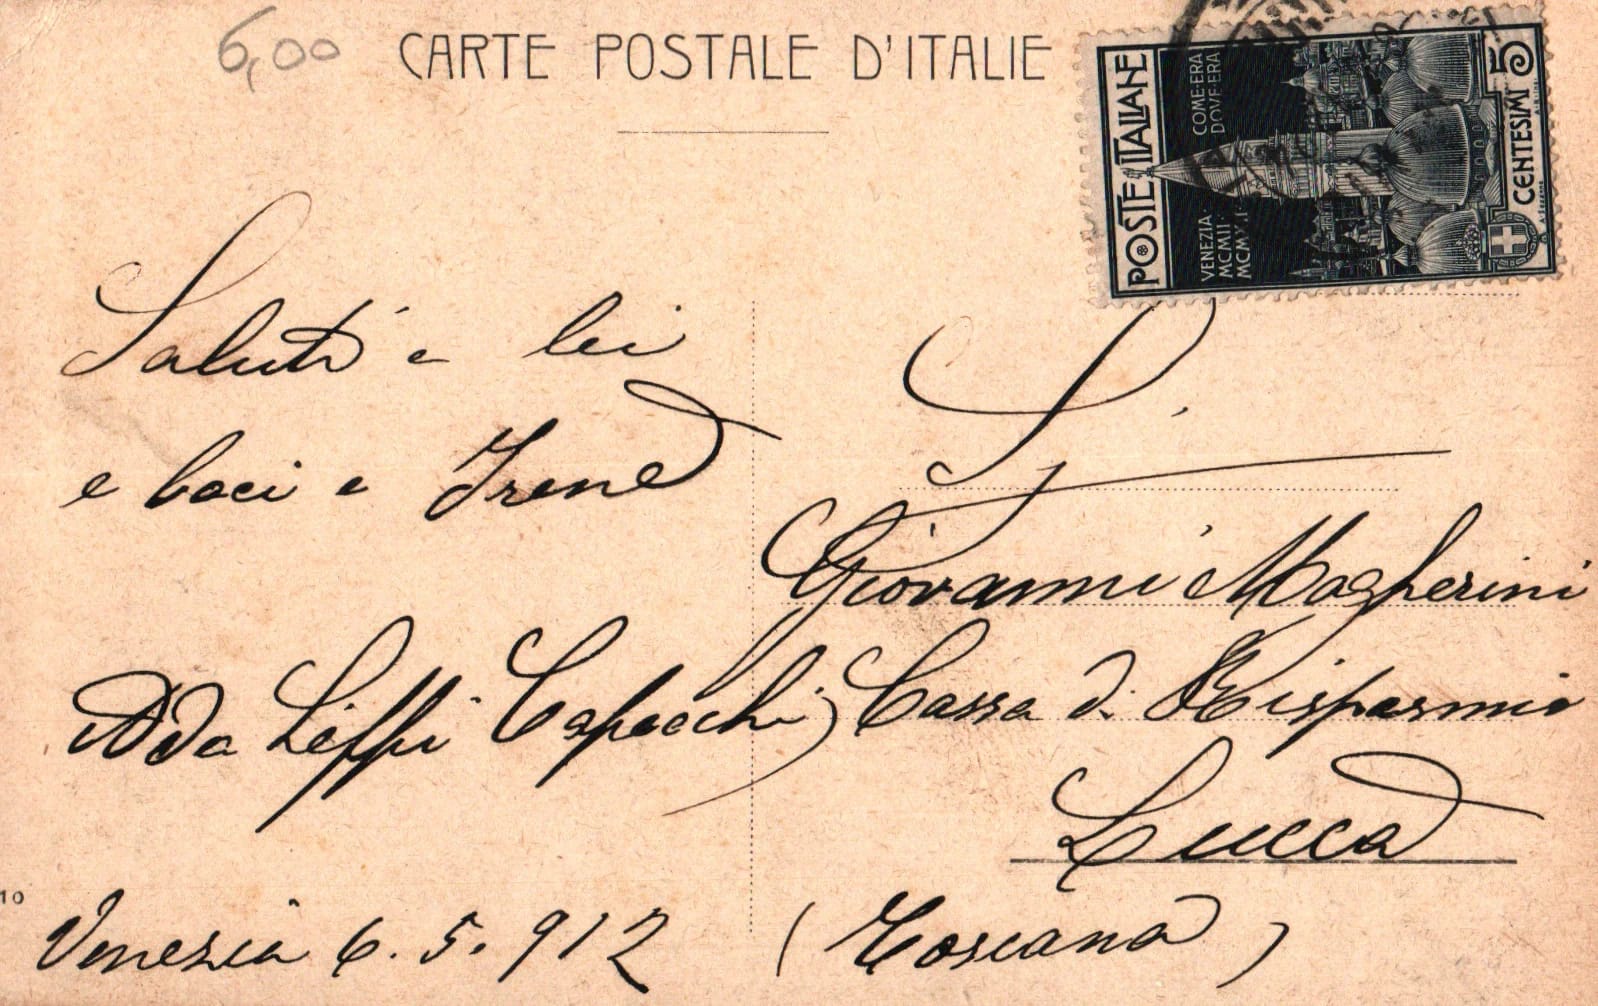 6,00
CARTE POSTALE D'ITALIE
POSTE ITALIANE
COM'ERA
DOV'ERA
VENEZIA
CENTESIMI 5
Saluti a lei
e baci a Irene
Ada Leffi Capecchi
Venezia 6. 5. 912
S.
Giovanni Magherini
Cassa di Risparmio
Lucca
(Toscana)
10